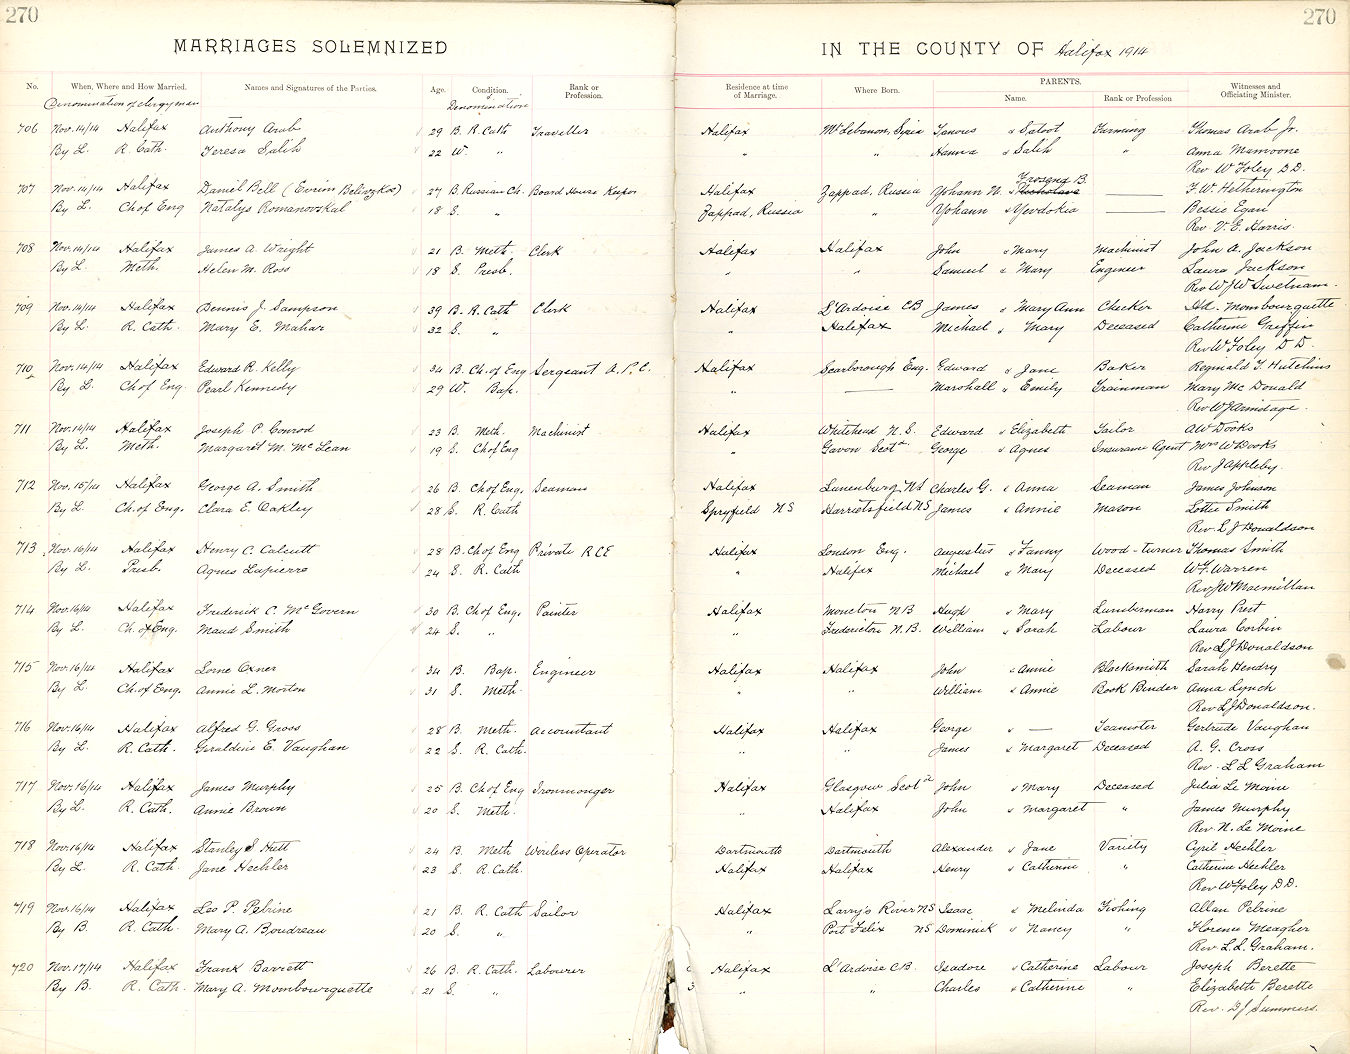 270 270
MARRIAGES SOLEMNIZED IN THE COUNTY OF Halifax 1914
No. When, Where and How Married. Names and Signatures of the Parties. Age. Condition. Rank or Profession. Residence at time of Marriage. Where Born. PARENTS. Name. Rank or Profession Witnesses and Officiating Minister.
Denomination of clergyman Denomination
706 Nov. 14/14 Halifax Anthony Arab 29 B. R. Cath Traveller Halifax Mt Lebanon, Syria & Farming Thomas Arab Jr.
By L. R. Cath. Teresa Salih 22 W. " " " Hanna & Salih " Anna Mamoone
Rev W Foley D D.
707 Nov. 14/14 Halifax Daniel Bell 27 B. Russian Ch. Board House Keeper Halifax Zappad, Russia Yohann N. & B. —— F. W. Hetherington
By L. Ch of Eng Natalys Romanovskal 18 S. " Zappad, Russia " Yohann & Yevdokia —— Bessie Egan
Rev V. E. Harris
708 Nov. 14/14 Halifax James A. Wright 21 B. Meth. Clerk Halifax Halifax John & Mary Machinist John A. Jackson
By L. Meth. Helen M. Ross 18 S. Presb. " " Samuel & Mary Engineer Laura Jackson
Rev W J W Swetnam.
709 Nov. 14/14 Halifax Dennis J. Sampson 39 B. R. Cath Clerk Halifax L'Ardoise CB James & Mary Ann Checker Ad. Mombourquette
By L. R. Cath. Mary E. Mahar 32 S. " " Halifax Michael & Mary Deceased Catherine Griffin
Rev W Foley D D.
710 Nov. 14/14 Halifax Edward R. Kelly 34 B. Ch. of Eng Sergeant A. P. C. Halifax Scarborough Eng. Edward & Jane Baker Reginald T. Hutchins
By L. Ch of Eng. Pearl Kennedy 29 W. Bap. " —— Marshall & Emily Trainman Mary Mc Donald
Rev W J Armitage.
711 Nov. 14/14 Halifax Joseph P. Conrod 23 B. Meth. Machinist Halifax Whitehead N. S. Edward & Elizabeth Tailor A W Dooks
By L. Meth. Margaret M. McLean 19 S. Ch of Eng " Gavon Scotd George & Agnes Insurance Agent Mrs W Dooks
Rev J Appleby.
712 Nov. 15/14 Halifax George A. Smith 26 B. Ch of Eng. Seaman Halifax Lunenburg NS Charles G. & Anna Seaman James Johnson
By L. Ch. of Eng. Clara E. Oakley 28 S. R. Cath Spryfield N S Harrietsfield NS James & Annie Mason Lottie Smith
Rev. L J Donaldson
713 Nov. 16/14 Halifax Henry C. Calcutt 28 B. Ch of Eng Private R C E Halifax London Eng. Augustus & Fanny Wood-turner Thomas Smith
By L. Presb. Agnes Lapierre 24 S. R. Cath " Halifax Michael & Mary Deceased W. F. Warren
Rev J W Macmillan
714 Nov. 16/14 Halifax Frederick C. McGovern 30 B. Ch of Eng. Painter Halifax Moncton N B Hugh & Mary Lumberman Harry Prest
By L. Ch. of Eng. Maud Smith 24 S. " " Fredericton N. B. William & Sarah Labour Laura Corbin
Rev L J Donaldson
715 Nov. 16/14 Halifax Lorne Oxner 34 B. Bap. Engineer Halifax Halifax John & Annie Blacksmith Sarah Hendry
By L. Ch. of Eng. Annie L. Morton 31 S. Meth. " " William & Annie Book Binder Anna Lynch
Rev L J Donaldson.
716 Nov. 16/14 Halifax Alfred G. Gross 28 B. Meth. Accountant Halifax Halifax George & — Teamster Gertrude Vaughan
By L. R. Cath. Geraldine E. Vaughan 22 S. R. Cath. " " James & Margaret Deceased A. G. Cross
Rev. L L Graham
717 Nov. 16/14 Halifax James Murphy 25 B. Ch of Eng Ironmonger Halifax Glasgow Scotd John & Mary Deceased Julia Le Moine
By L. R. Cath. Annie Brown 20 S. Meth. " Halifax John & Margaret " James Murphy
Rev. N. Le Moine
718 Nov. 16/14 Halifax Stanley S Hutt 24 B. Meth Wireless Operator Dartmouth Dartmouth Alexander & Jane Variety Cyril Hechler
By L. R. Cath. Jane Hechler 23 S. R. Cath. Halifax Halifax Henry & Catherine " Catherine Hechler
Rev W Foley D D.
719 Nov. 16/14 Halifax Leo P. Pelrine 21 B. R. Cath Sailor Halifax Larry's River NS Isaac & Melinda Fishing Allan Pelrine
By B. R. Cath. Mary A. Boudreau 20 S. " " Port Felix NS Dominick & Nancy " Florence Meagher
Rev. L. L. Graham.
720 Nov. 17/14 Halifax Frank Barrett 26 B. R. Cath. Labourer Halifax L'Ardoise C.B. Isadore & Catherine Labour Joseph Berette
By B. R. Cath. Mary A. Mombourquette 21 S. " " " Charles & Catherine " Elizabeth Berette
Rev. D J Summers.